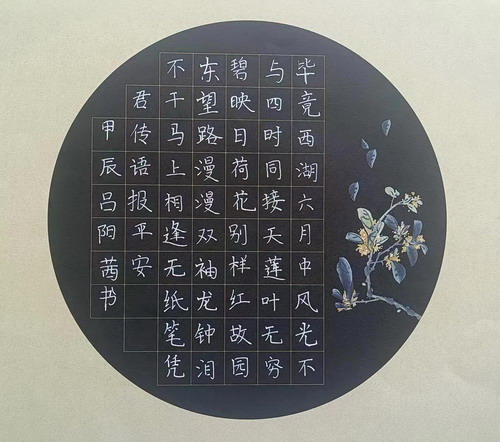 毕竟西湖六月中风光不
与四时同接天莲叶无穷
碧映日荷花别样红故园
东望路漫漫双袖龙钟泪
不干马上相逢无纸笔凭
君传语报平安
甲辰吕阳茜书